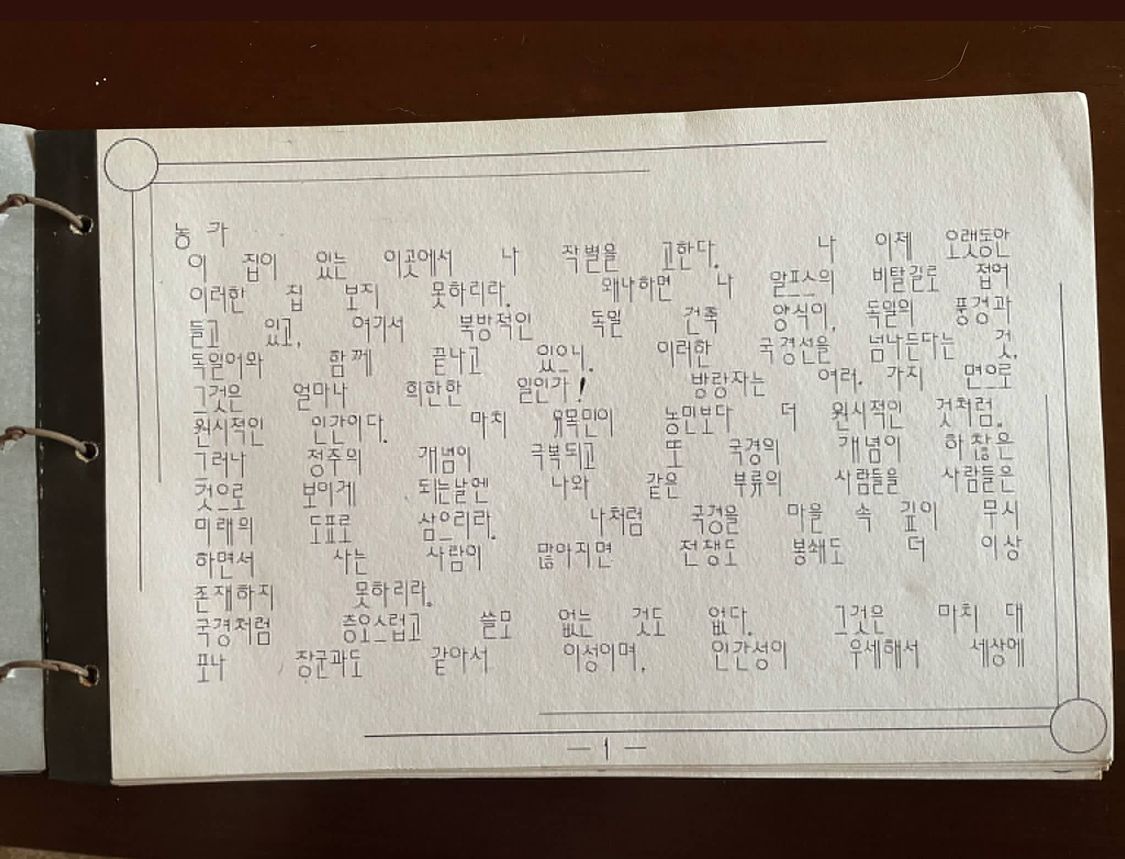 농 가
이 집이 있는 이곳에서 나 작별을 고한다. 나 이제 오랫동안
이러한 집 보지 못하리라. 왜냐하면 나 알프스의 비탈길로 접어
들고 있고, 여기서 북방적인 독일 건축 양식이, 독일의 풍경과
독일어와 함께 끝나고 있으니. 이러한 국경선을 넘나든다는 것,
그것은 얼마나 희한한 일인가! 방랑자는 여러. 가지 면으로
원시적인 인간이다. 마치 유목민이 농민보다 더 원시적인 것처럼.
그러나 정주의 개념이 극복되고 또 국경의 개념이 하찮은
것으로 보이게 되는날엔 나와 같은 부류의 사람들을 사람들은
미래의 도표로 삼으리라. 나처럼 국경을 마을 속 깊이 무시
하면서 사는 사람이 많아지면 전쟁도 봉쇄도 더 이상
존재하지 못하리라.
국경처럼 증오스럽고 쓸모 없는 것도 없다. 그것은 마치 대
포나 장군과도 같아서 이성이며, 인간성이 우세해서 세상에
— 1 —